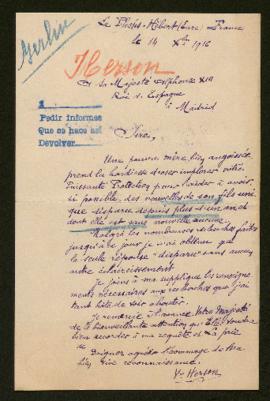 Berlin
Le Plessis-Hébert (Eure) France
le 14 Xbre 1916
Herson
A Sa Majesté Alphonse XIII
Roi d'Espagne
à Madrid
1
Pedir informes
Que se hace así
Devolver
Sire,
Une pauvre mère bien angoissée
prend la hardiesse d'oser implorer votre
Puissante Protection pour l'aider à avoir,
si possible, des nouvelles de son fils uni-
que disparu depuis plus d'un an et
dont elle est sans nouvelle aucune.
Malgré les nombreuses recherches faites
jusqu'à ce jour je n'ai obtenu que
la seule réponse "disparu" sans aucun
autre éclaircissement
Je joins à ma supplique les renseigne-
ments nécessaires aux recherches que j'ai
tant hâte de voir aboutir.
Je remercie d'avance Votre Majesté
de la bienveillante attention qu'Elle voudra
bien accorder à ma requête et La prie
de
Daigner agréer l'hommage de ma
bien vive reconnaissance.
Vve Herson